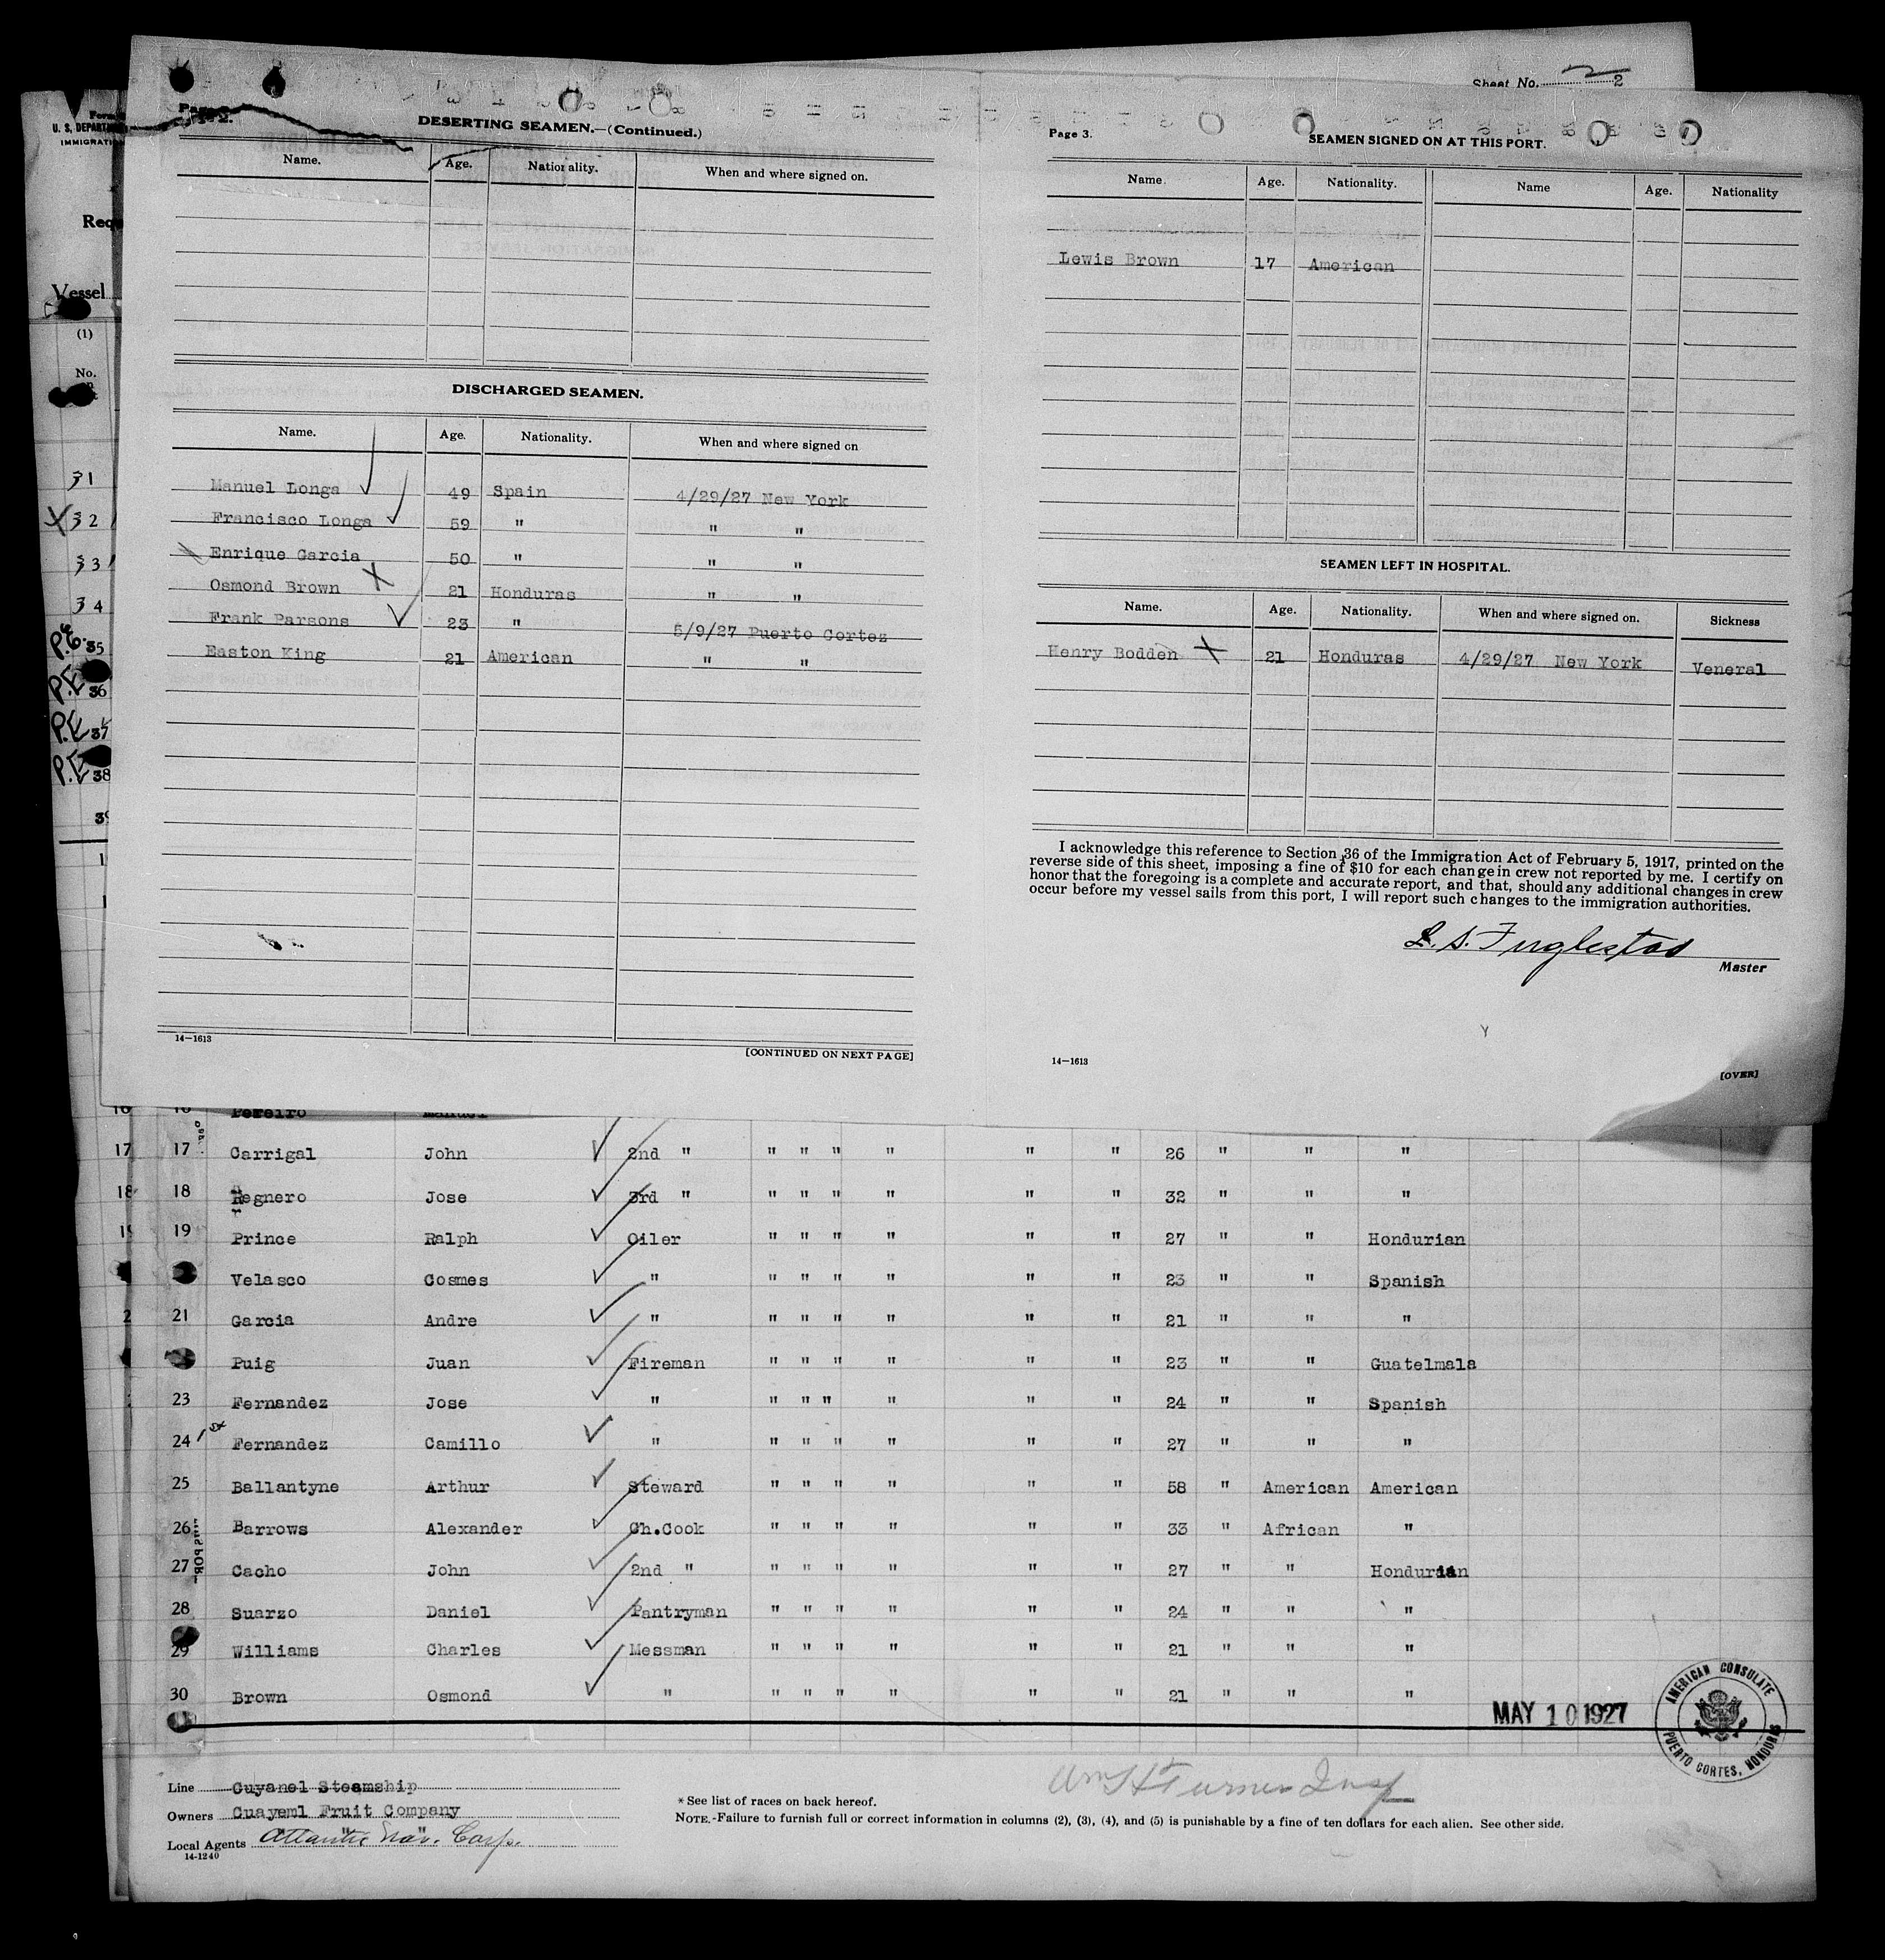 Sheet No. 2
Form
U. S. DEPART
IMMIGRATION
Requ
Vessel
(1)
No.
31
X 32
33
34
P.E. 35
P.E 36
P.E 37
P.E 38
39
Page 2.
DESERTING SEAMEN.—(Continued.)
Name. Age. Nationality. When and where signed on.
DISCHARGED SEAMEN.
Name. Age. Nationality. When and where signed on
Manuel Longa 49 Spain 4/29/27 New York
Francisco Longa 59 " " "
Enrique Garcia 50 " " "
Osmond Brown X 21 Honduras " "
Frank Parsons 23 " 5/9/27 Puerto Cortez
Easton King 21 American " "
14—1613
[CONTINUED ON NEXT PAGE]
Page 3.
SEAMEN SIGNED ON AT THIS PORT.
Name. Age. Nationality. Name Age. Nationality
Lewis Brown 17 American
SEAMEN LEFT IN HOSPITAL.
Name. Age. Nationality. When and where signed on. Sickness
Henry Bodden X 21 Honduras 4/29/27 New York Veneral
I acknowledge this reference to Section 36 of the Immigration Act of February 5, 1917, printed on the
reverse side of this sheet, imposing a fine of $10 for each change in crew not reported by me. I certify on
honor that the foregoing is a complete and accurate report, and that, should any additional changes in crew
occur before my vessel sails from this port, I will report such changes to the immigration authorities.
Master
14—1613
[OVER]
16 Pereiro Manuel
17 17 Carrigal John 2nd " " " " " " " 26 " " "
18 18 Regnero Jose 3rd " " " " " " " 32 " " "
19 Prince Ralph Oiler " " " " " " 27 " " Hondurian
Velasco Cosmes " " " " " " " 23 " " Spanish
21 Garcia Andre " " " " " " " 21 " " "
Puig Juan Fireman " " " " " " 23 " " Guatelmala
23 Fernandez Jose " " " " " " " 24 " " Spanish
24 Fernandez Camillo " " " " " " " 27 " " "
25 Ballantyne Arthur Steward " " " " " " 58 " American American
26 Barrows Alexander Ch.Cook " " " " " " 33 " African "
27 Cacho John 2nd " " " " " " " 27 " " Hondurian
28 Suarzo Daniel Pantryman " " " " " " 24 " " "
29 Williams Charles Messman " " " " " " 21 " " "
30 Brown Osmond " " " " " " " 21 " " "
MAY 10 1927
AMERICAN CONSULATE
PUERTO CORTES, HONDURAS
Line Cuyanel Steamship
Owners Cuayeml Fruit Company
Local Agents Atlantic Nav. Corp.
14-1240
Wm H Turner Insp
* See list of races on back hereof.
NOTE.-Failure to furnish full or correct information in columns (2), (3), (4), and (5) is punishable by a fine of ten dollars for each alien. See other side.